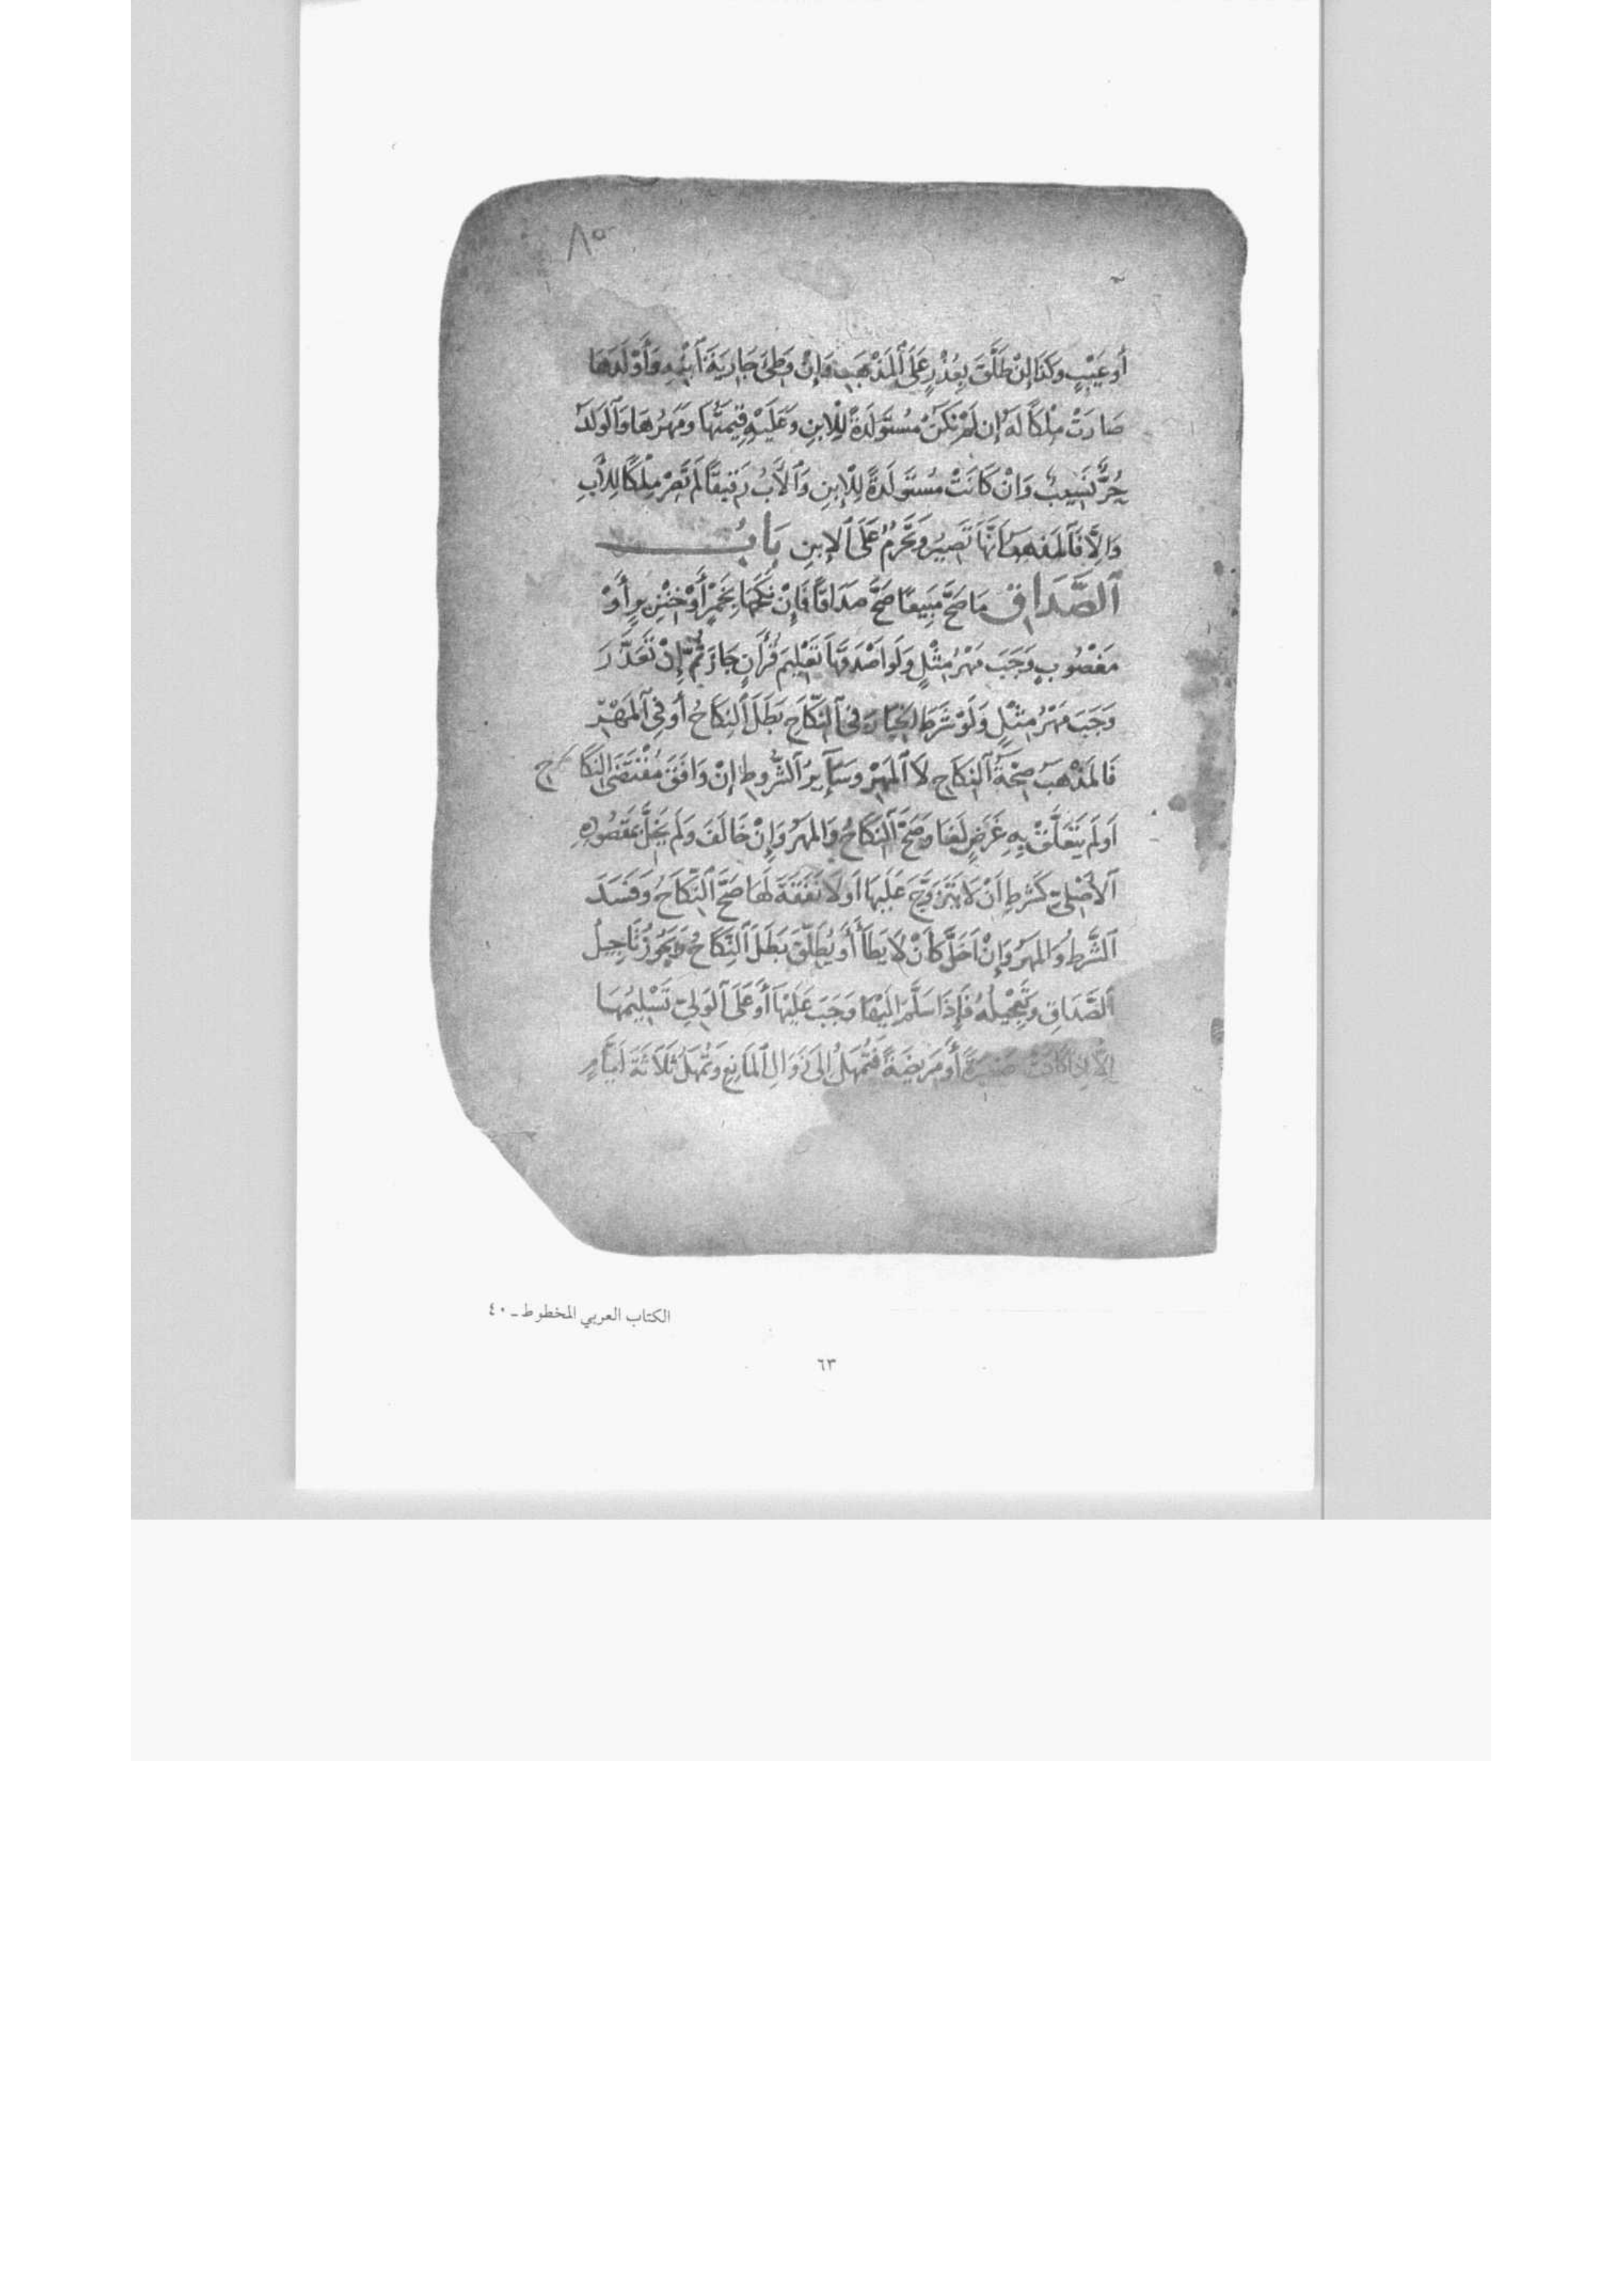 ٨٥
أَو عَيْبٍ وكَذَا إِنْ طَلَّقَ بِعُذْرٍ عَلَى ٱلمَذْهَبِ وَإِنْ وَطِئَ جَارِيَةَ ٱبْنِهِ وَأَوْلَدَهَا
صَارَتْ مِلْكًا لَهُ إِن لَمْ تَكُنْ مُسْتَوْلَدَةً لِلْاِبنِ وَعَلَيْهِ قِيمَتُهَا وَمَهْرُهَا وَٱلوَلَدُ
حُرٌّ نَسِيبٌ وَانْ كَانَتْ مُسْتَوْلَدَةً لِلْاِبنِ وَٱلأَبُ رَقِيقًا لَم تَصِرْ مِلْكًا لِلأَبِ
وَاِلَّا فَٱلمَفهومُ أَنَّهَا تَصِيرُ وَتَحْرُمُ عَلَى ٱلاِبنِ بَابُ
ٱلصَّدَاقِ مَا صَحَّ مَبِيعًا صَحَّ صَدَاقًا فَإِنْ نَكَحَهَا بِخَمْرٍ أَوْ خِنْزِيرٍ أَوْ
مَغْصُوبٍ وَجَبَ مَهْرُ مِثْلٍ وَلَو اَصْدَقَهَا تَعْلِيمَ قُرْاٰنٍ جَازَ ثُمَّ إِنْ تَعَذَّرَ
وَجَبَ مَهْرُ مِثْلٍ وَلَوْ شَرَطَ الخِيَارَ فِى ٱلنِّكَاحِ بَطَلَ ٱلنِّكَاحُ أَو فِى ٱلمَهْرِ
فَالمَذْهَبُ صِحَّةُ ٱلنِّكَاحِ لَا ٱلمَهْرِ وسَآيِرُ ٱلشُّرُوطِ إِنْ وَافَقَ مُقْتَضَى ٱلنِّكَاحِ
اَو لَم يَتَعَلَّقْ بِهِ غَرَضٌ لَغَا وَصَحَّ ٱلنِّكَاحُ وَالمَهْرُ وَإِنْ خَالَفَ وَلَم يُخِلَّ بِمَقصُودِهِ
ٱلأَصْلِىِّ كَشَرطِ اَنْ لَا يَتَزَوَّجَ عَلَيهَا اَو لَا نَفَقَةَ لَهَا صَحَّ ٱلنِّكَاحُ وَفَسَدَ
ٱلشَّرطُ وَالمَهْرُ وَإِنْ اَخَلَّ كَأَنْ لَا يَطَأَ أَو يُطَلِّقَ بَطَلَ ٱلنِّكَاحُ وَيَجُوزُ تَاجِيلُ
ٱلصَّدَاقِ وَتَعْجِيلُهُ فَإِذَا سَلَّمَ اِلَيْهَا وَجَبَ عَلَيْهَا أَو عَلَى ٱلوَلِىِّ تَسْلِيمُهَا
إِلَّا إِذَا كَانَتْ صَغِيرَةً أَو مَرِيضَةً فَتُمْهَلُ إِلَى زَوَالِ ٱلمَانِعِ وَتُمْهَلُ ثَلَاثَةَ اَيَّامٍ
الكتاب العربي المخطوط ـ ٤٠
٦٣